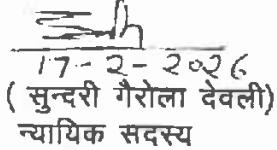 17-2-2026
( सुन्दरी गैरोला देवली)
न्यायिक सदस्य